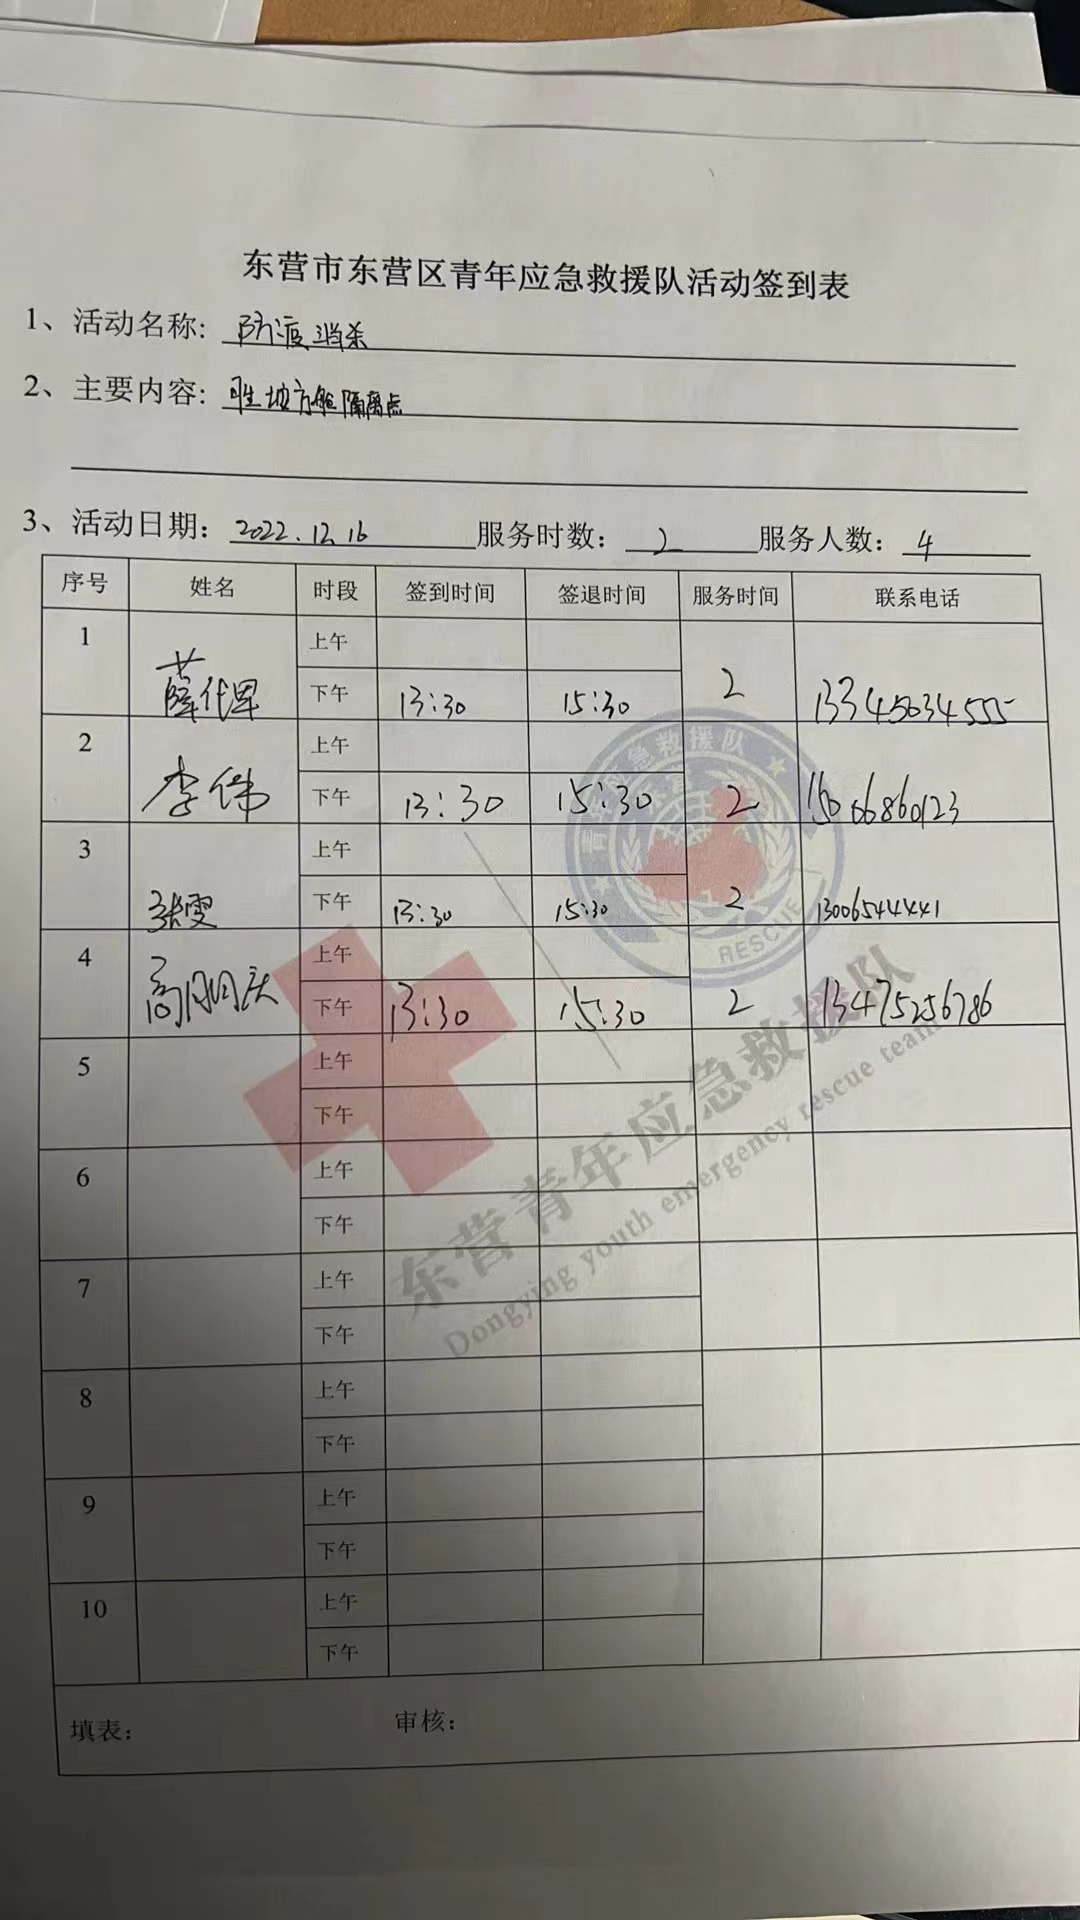 东营市东营区青年应急救援队活动签到表
1、活动名称: 防疫消杀
2、主要内容: 胜坨方舱隔离点
3、活动日期: 2022.12.16 服务时数: 2 服务人数: 4
序号 姓名 时段 签到时间 签退时间 服务时间 联系电话
1 上午
薛代军 下午 13:30 15:30 2 13345634555
2 上午
李伟 下午 13:30 15:30 2 15066860123
3 上午
张雯 下午 13:30 15:30 2 13006544441
4 上午
高 庆 下午 13:30 15:30 2 13475256786
5 上午
下午
6 上午
下午
7 上午
下午
8 上午
下午
9 上午
下午
10 上午
下午
填表: 审核:
青年应急救援队
RESCUE
东营青年应急救援队
Dongying youth emergency rescue team